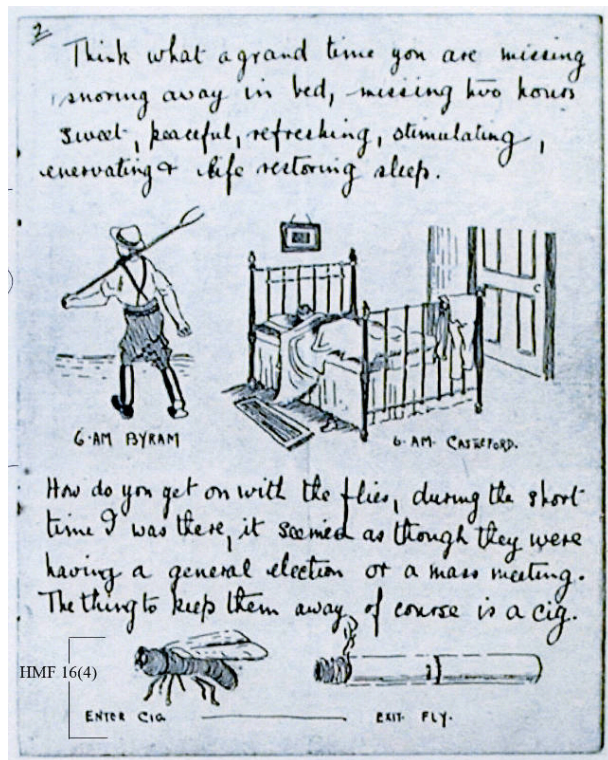 2
Think what a grand time you are missing
snoring away in bed, missing two hours
sweet, peaceful, refreshing, stimulating,
enervating & life restoring sleep.
6·AM BYRAM
6·AM· CASTLEFORD.
How do you get on with the flies, during the short
time I was there, it seemed as though they were
having a general election or a mass meeting.
The thing to keep them away, of course is a cig.
HMF 16(4)
ENTER CIG.
EXIT· FLY·